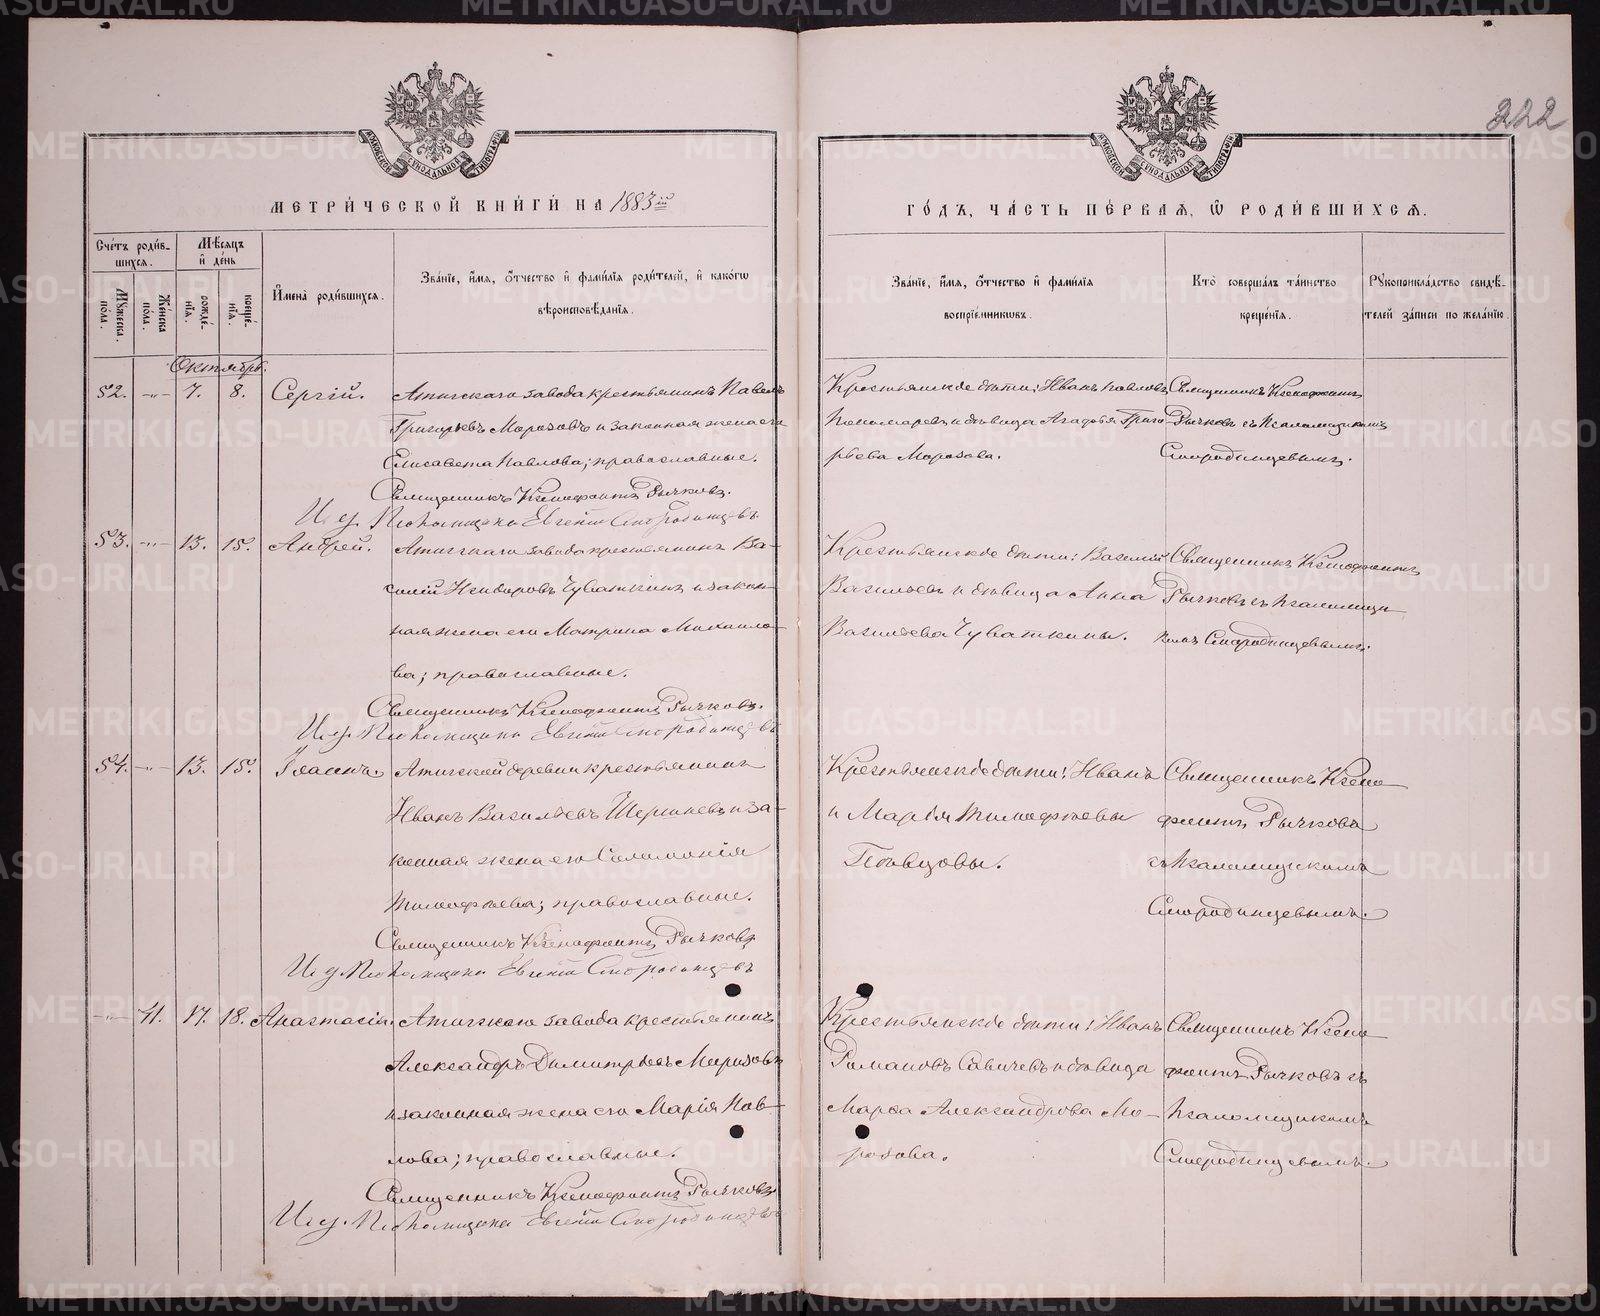 222
МЕТРИ́ЧЕСКОЙ КНИ́ГИ НА 1883ій
ГО́ДЪ, ЧА́СТЬ ПЕ́РВАЯ, Ѡ РОДИ́ВШИХСЯ.
Сче́тъ роди́вшихся.
Му́жеска по́ла.
Же́нска по́ла.
Мѣ́сяцъ и́ де́нь
рожде́нія.
креще́нія.
И҆мена̀ роди́вшихся.
Зва́ніе, и҆́мя, ѻ҆́тчество и҆ фами́лія роди́телей, и҆ како́гѡ
вѣроисповѣ́данія.
Зва́ніе, и҆́мя, ѻ҆́тчество и҆ фами́лія
воспріе́мниковъ.
Кто̀ соверша́лъ та́инство
креще́нія.
Рукоприкла́дство свидѣ́-
телей за́писи по жела́нію.
Октябрь.
52. -„- 7. 8. Сергій. Атигскаго завода крестьянинъ Павелъ
Григорьевъ Морозовъ и законная жена его
Елисавета Павлова; православные.
Священникъ Ксенофонтъ Рычковъ.
И. д. Псаломщика Евгеній Смородинцевъ
Крестьянскіе дѣти: Иванъ Павловъ
Пономаревъ и дѣвица Агафья Григо
рьева Морозова.
Священникъ Ксенофонтъ
Рычковъ съ Псаломщикомъ
Смородинцевымъ.
53. -„- 13. 15. Андрей. Атигскаго завода крестьянинъ Ва-
силій Исидоровъ Чуваткинъ и закон-
ная жена его Матрина Михаило-
ва; православные.
Священникъ Ксенофонтъ Рычковъ.
И. д. Псаломщика Евгеній Смородинцевъ
Крестьянскіе дѣти: Василій
Васильевъ и дѣвица Анна
Васильева Чуваткины.
Священникъ Ксенофонтъ
Рычковъ съ Псаломщи
комъ Смородинцевымъ.
54. -„- 13. 15. Іоаннъ. Атигской деревни крестьянинъ
Иванъ Васильевъ Шершневъ и за-
конная жена его Саломонія
Тимофѣева; православные.
Священникъ Ксенофонтъ Рычковъ
И. д. Псаломщика Евгеній Смородинцевъ
Крестьянскіе дѣти: Иванъ
и Марія Тимофѣевы
Пѣвцовы.
Священникъ Ксено
фонтъ Рычковъ
съ Псаломщикомъ
Смородинцевымъ.
-„- 41. 17. 18. Анастасія. Атигскаго завода крестьянинъ
Александръ Димитріевъ Морозовъ
и законная жена его Марія Пав-
лова; православные.
Священникъ Ксенофонтъ Рычковъ
И. д. Псаломщика Евгеній Смородинцевъ
Крестьянскіе дѣти: Иванъ
Романовъ Савичевъ и дѣвица
Марѳа Александрова Мо-
розова.
Священникъ Ксено
фонтъ Рычковъ съ
Псаломщикомъ
Смородинцевымъ.
METRIKI.GASO-URAL.RU